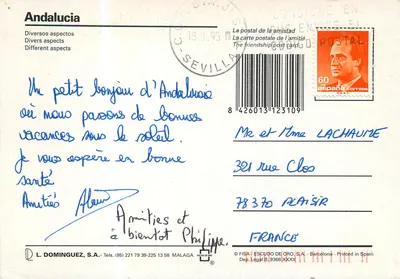 Andalucía
Diversos aspectos
Divers aspects
Different aspects
La postal de la amistad
La carte postale de l'amitié
The friendship card
SEVILLA
60
españa
8 426013 123109
Un petit bonjour d'Andalousie
où nous passons de bonnes
vacances sous le soleil.
Je vous espère en bonne
santé
Amitiés Alain
Amities et
à bientot Philippe.
Mr et Mme LACHAUME
321 rue Clos
78370 PLAISIR
FRANCE
L. DOMINGUEZ, S.A.- Tels. (95) 221 79 39-225 13 58 MALAGA
© FISA ESCUDO DE ORO, S.A. - Barcelona - Printed in Spain